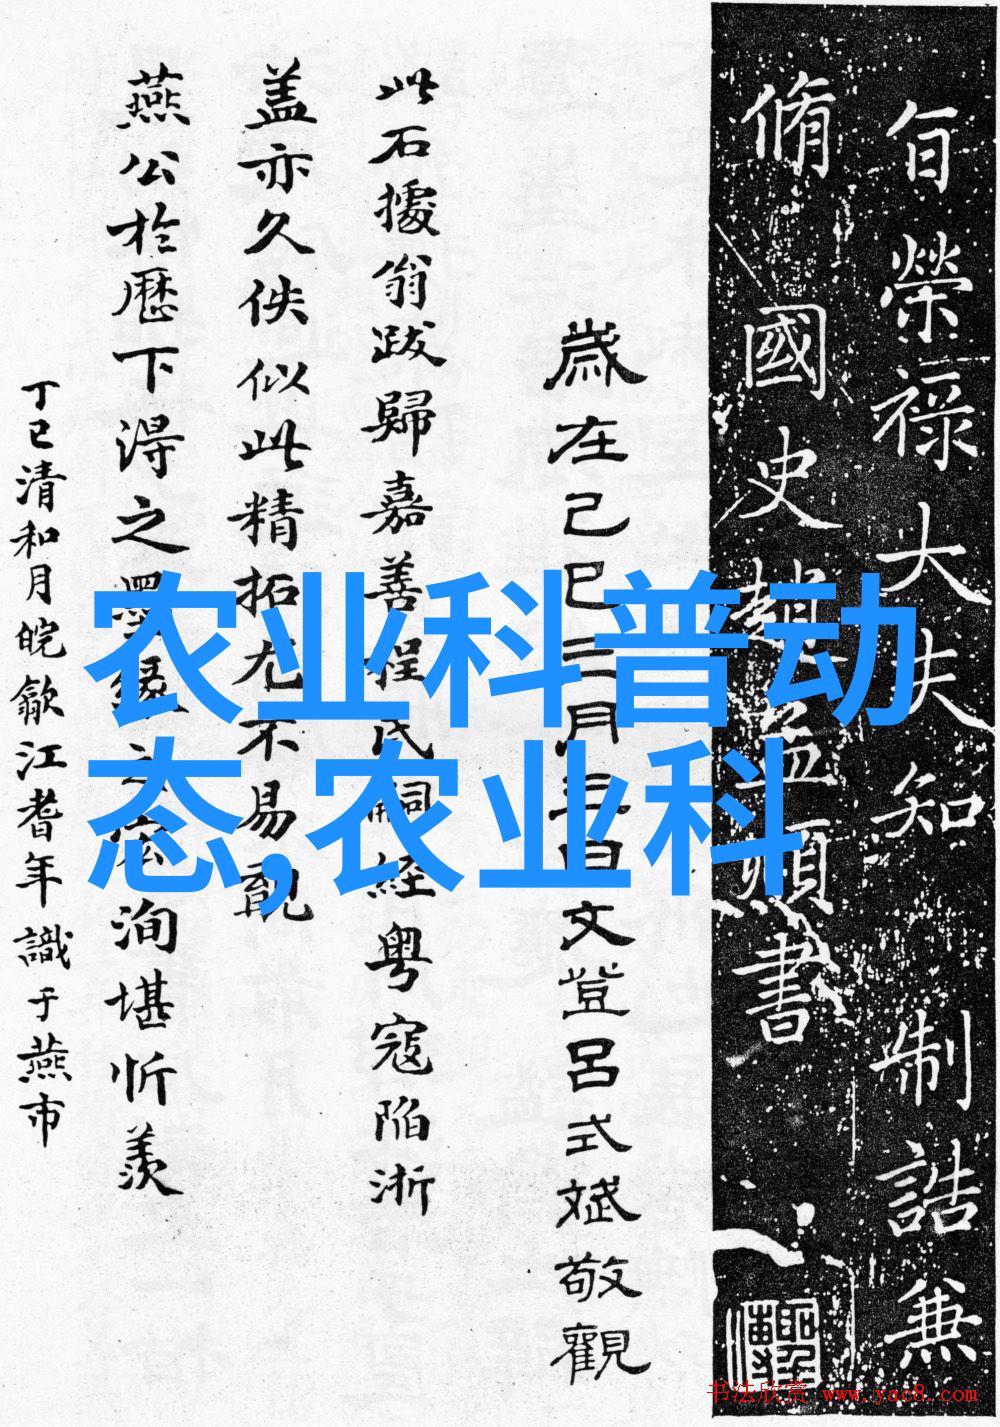 旨榮祿大夫知制誥兼
脩國史趙孟頫書
歲在己巳三月三日文登呂式斌敬觀
此石據翁跋歸嘉善程氏嗣經粵寇陷浙
蓋亦久佚似此精拓尤不易覯
燕公於歷下得之墨緣之洵堪忻羨
丁巳清和月皖歙江耆年識于燕市
农业科普动
态,农业科
书法欣赏 www.yac8.com